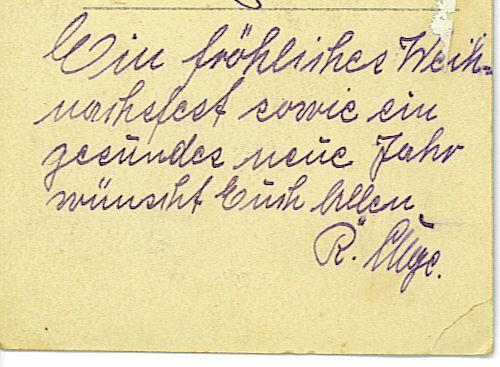 Ein fröhliches Weih-
nachsfest sowie ein
gesundes neue Jahr
wünscht Euch Allen
R.